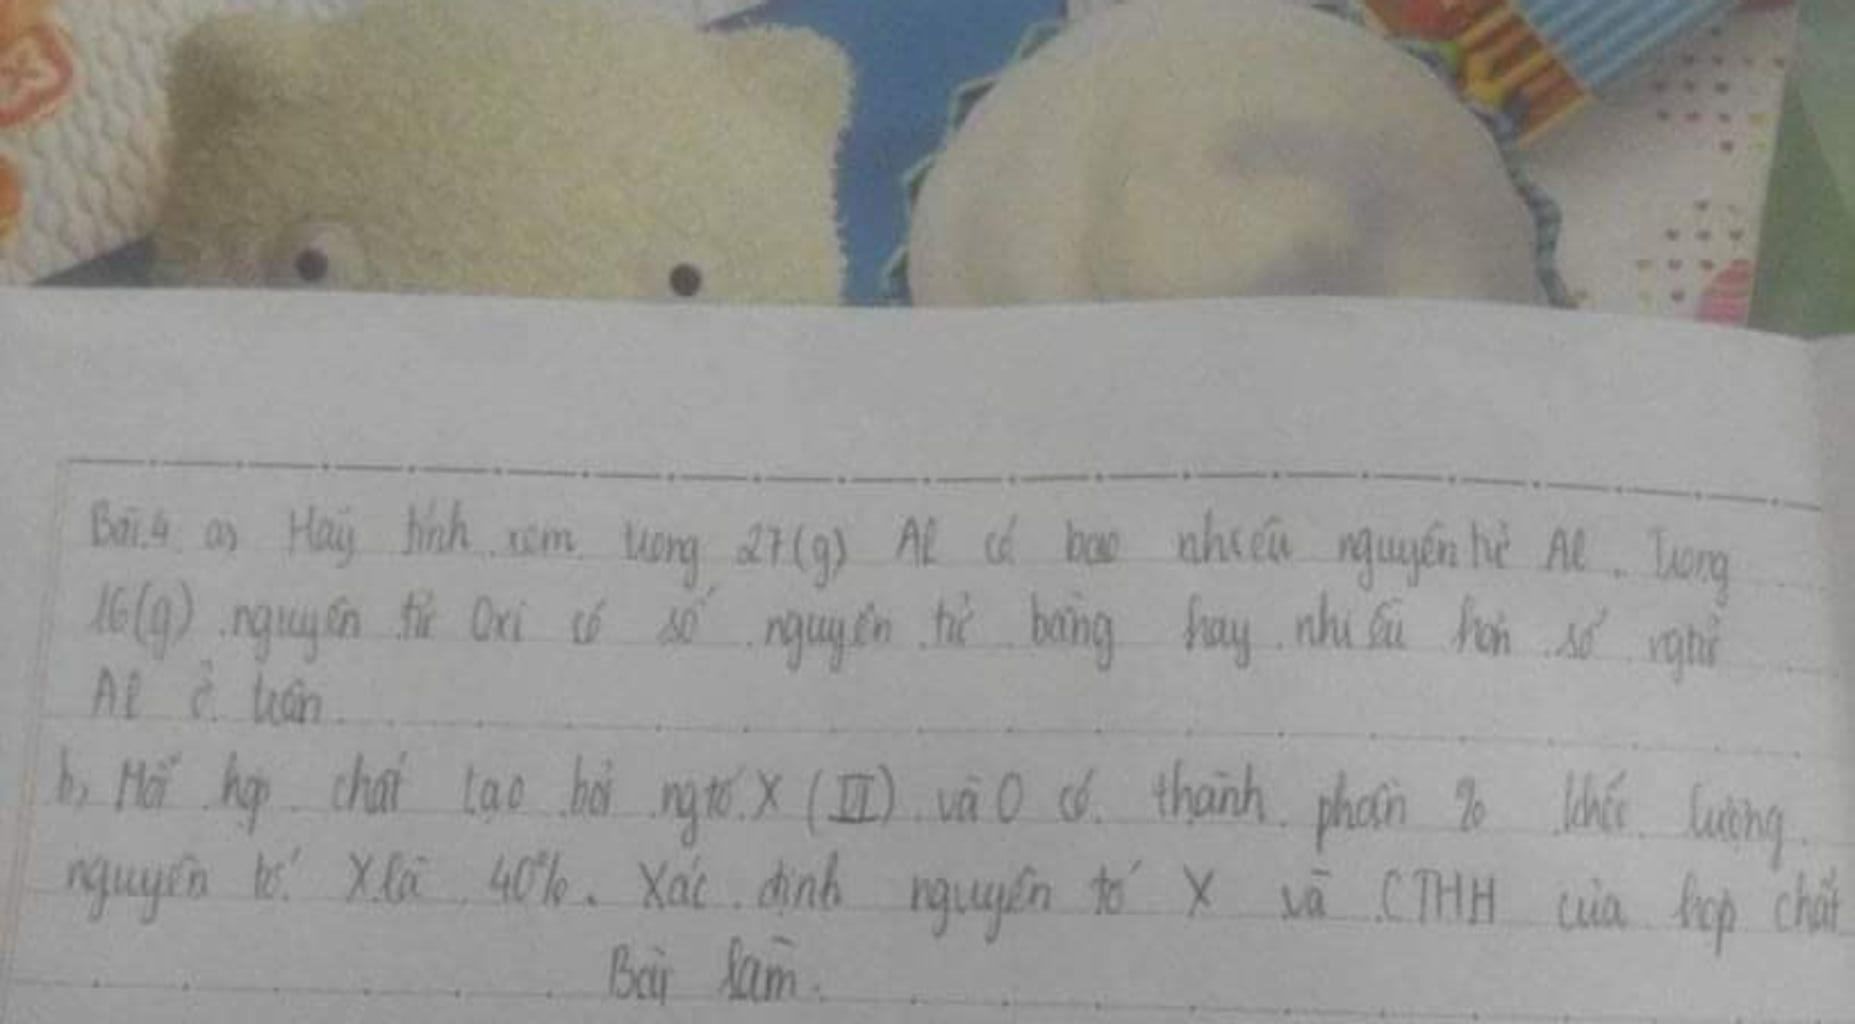 Bài.4. a, Hãy tính xem trong 27(g) Al có bao nhiêu nguyên tử Al. Trong
16(g) nguyên tử Oxi có số nguyên tử bằng hay nhiều hơn số ngtử
Al ở trên
b, Một hợp chất tạo bởi ngtố X (VI) và O có thành phần % khối lượng
nguyên tố X là 40%. Xác định nguyên tố X và CTHH của hợp chất
Bài làm.